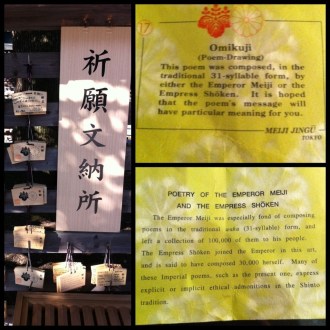 祈願文納所
17
Omikuji
(Poem-Drawing)
This poem was composed, in the
traditional 31-syllable form, by
either the Emperor Meiji or the
Empress Shōken. It is hoped
that the poem's message will
have particular meaning for you.
MEIJI JINGŪ
TOKYO
POETRY OF THE EMPEROR MEIJI
AND THE EMPRESS SHŌKEN
The Emperor Meiji was especially fond of composing
poems in the traditional waka (31-syllable) form, and
left a collection of 100,000 of them to his people.
The Empress Shōken joined the Emperor in this art,
and is said to have composed 30,000 herself. Many of
these Imperial poems, such as the present one, express
explicit or implicit ethical admonitions in the Shinto
tradition.